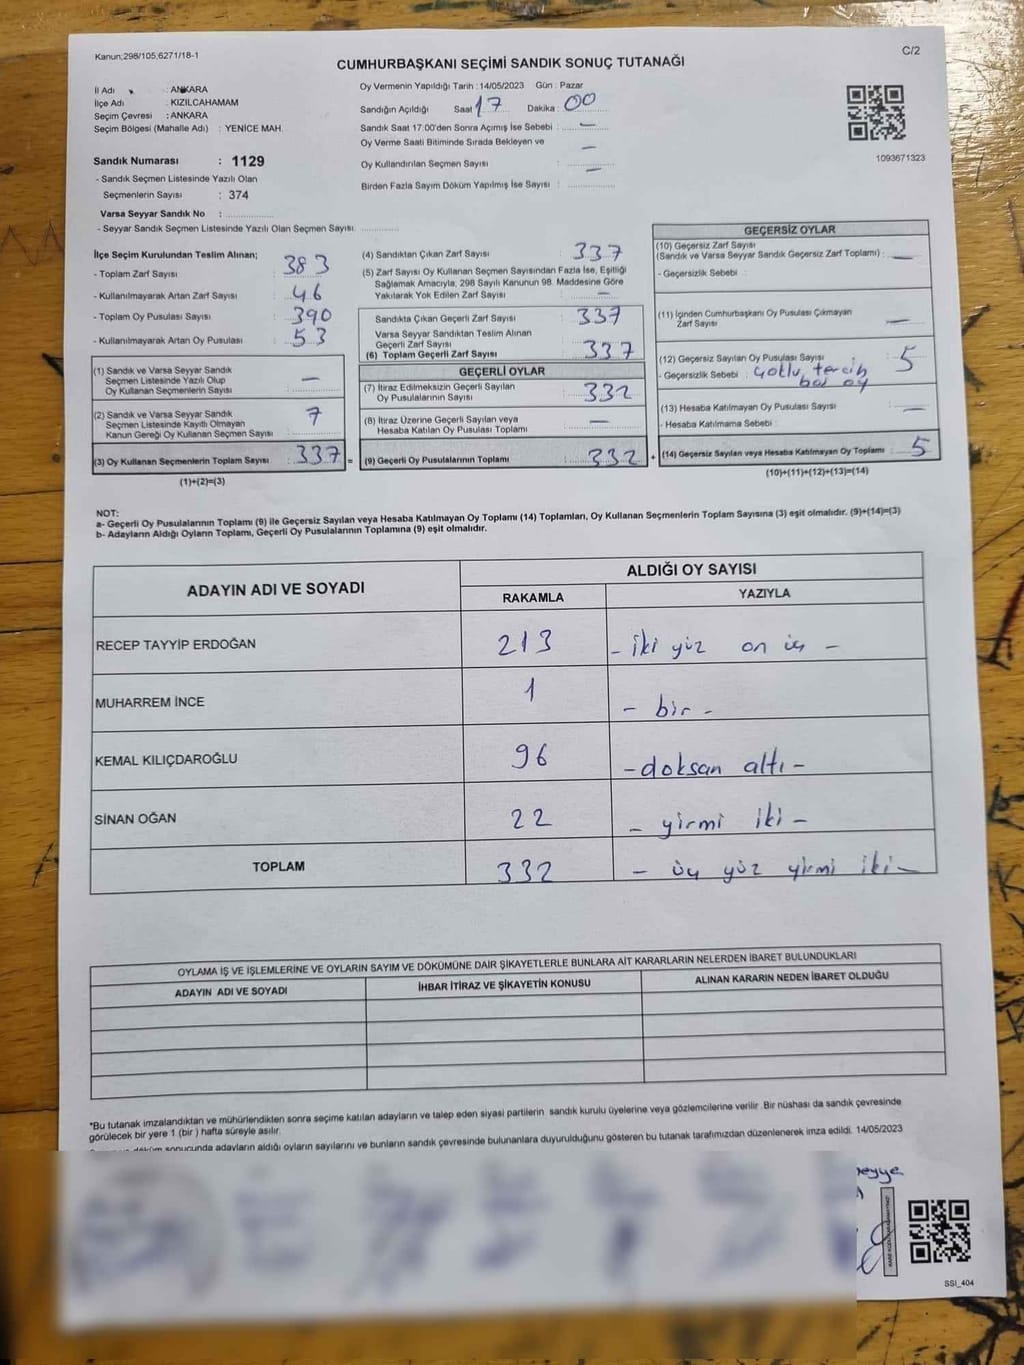 Kanun;298/105,6271/18-1
C/2
CUMHURBAŞKANI SEÇİMİ SANDIK SONUÇ TUTANAĞI
İl Adı : ANKARA
İlçe Adı : KIZILCAHAMAM
Seçim Çevresi : ANKARA
Seçim Bölgesi (Mahalle Adı) : YENİCE MAH.
Sandık Numarası : 1129
- Sandık Seçmen Listesinde Yazılı Olan
Seçmenlerin Sayısı : 374
Varsa Seyyar Sandık No :
- Seyyar Sandık Seçmen Listesinde Yazılı Olan Seçmen Sayısı
Oy Vermenin Yapıldığı Tarih : 14/05/2023 Gün : Pazar
Sandığın Açıldığı Saat 17 Dakika : 00
Sandık Saat 17:00'den Sonra Açımış İse Sebebi : —
Oy Verme Saati Bitiminde Sırada Bekleyen ve
Oy Kullandırılan Seçmen Sayısı : —
Birden Fazla Sayım Döküm Yapılmış İse Sayısı : —
1093671323
İlçe Seçim Kurulundan Teslim Alınan;
- Toplam Zarf Sayısı : 383
- Kullanılmayarak Artan Zarf Sayısı : 46
- Toplam Oy Pusulası Sayısı : 390
- Kullanılmayarak Artan Oy Pusulası : 53
(1) Sandık ve Varsa Seyyar Sandık
Seçmen Listesinde Yazılı Olup
Oy Kullanan Seçmenlerin Sayısı : —
(2) Sandık ve Varsa Seyyar Sandık
Seçmen Listesinde Kayıtlı Olmayan
Kanun Gereği Oy Kullanan Seçmen Sayısı : 7
(3) Oy Kullanan Seçmenlerin Toplam Sayısı : 337 =
(1)+(2)=(3)
(4) Sandıktan Çıkan Zarf Sayısı : 337
(5) Zarf Sayısı Oy Kullanan Seçmen Sayısından Fazla İse, Eşitliği
Sağlamak Amacıyla, 298 Sayılı Kanunun 98. Maddesine Göre
Yakılarak Yok Edilen Zarf Sayısı : —
Sandıkta Çıkan Geçerli Zarf Sayısı : 337
Varsa Seyyar Sandıktan Teslim Alınan
Geçerli Zarf Sayısı
(6) Toplam Geçerli Zarf Sayısı : 337
GEÇERLİ OYLAR
(7) İtiraz Edilmeksizin Geçerli Sayılan
Oy Pusulalarının Sayısı : 332
(8) İtiraz Üzerine Geçerli Sayılan veya
Hesaba Katılan Oy Pusulası Toplamı : —
(9) Geçerli Oy Pusulalarının Toplamı : 332 +
GEÇERSİZ OYLAR
(10) Geçersiz Zarf Sayısı
(Sandık ve Varsa Seyyar Sandık Geçersiz Zarf Toplamı) : —
- Geçersizlik Sebebi :
(11) İçinden Cumhurbaşkanı Oy Pusulası Çıkmayan
Zarf Sayısı : —
(12) Geçersiz Sayılan Oy Pusulası Sayısı : 5
- Geçersizlik Sebebi : çoklu tercih
boş oy
(13) Hesaba Katılmayan Oy Pusulası Sayısı : —
- Hesaba Katılmama Sebebi :
(14) Geçersiz Sayılan veya Hesaba Katılmayan Oy Toplamı : 5
(10)+(11)+(12)+(13)=(14)
NOT:
a- Geçerli Oy Pusulalarının Toplamı (9) ile Geçersiz Sayılan veya Hesaba Katılmayan Oy Toplamı (14) Toplamları, Oy Kullanan Seçmenlerin Toplam Sayısına (3) eşit olmalıdır. (9)+(14)=(3)
b- Adayların Aldığı Oyların Toplamı, Geçerli Oy Pusulalarının Toplamına (9) eşit olmalıdır.
ADAYIN ADI VE SOYADI
ALDIĞI OY SAYISI
RAKAMLA YAZIYLA
RECEP TAYYİP ERDOĞAN 213 - iki yüz on üç -
MUHARREM İNCE 1 - bir -
KEMAL KILIÇDAROĞLU 96 - doksan altı -
SİNAN OĞAN 22 - yirmi iki -
TOPLAM 332 - üç yüz yirmi iki -
OYLAMA İŞ VE İŞLEMLERİNE VE OYLARIN SAYIM VE DÖKÜMÜNE DAİR ŞİKAYETLERLE BUNLARA AİT KARARLARIN NELERDEN İBARET BULUNDUKLARI
ADAYIN ADI VE SOYADI İHBAR İTİRAZ VE ŞİKAYETİN KONUSU ALINAN KARARIN NEDEN İBARET OLDUĞU
*Bu tutanak imzalandıktan ve mühürlendikten sonra seçime katılan adayların ve talep eden siyasi partilerin sandık kurulu üyelerine veya gözlemcilerine verilir. Bir nüshası da sandık çevresinde
görülecek bir yere 1 (bir) hafta süreyle asılır.
sonucunda adayların aldığı oyların sayılarını ve bunların sandık çevresinde bulunanlara duyurulduğunu gösteren bu tutanak tarafımızdan düzenlenerek imza edildi. 14/05/2023
SSI_404